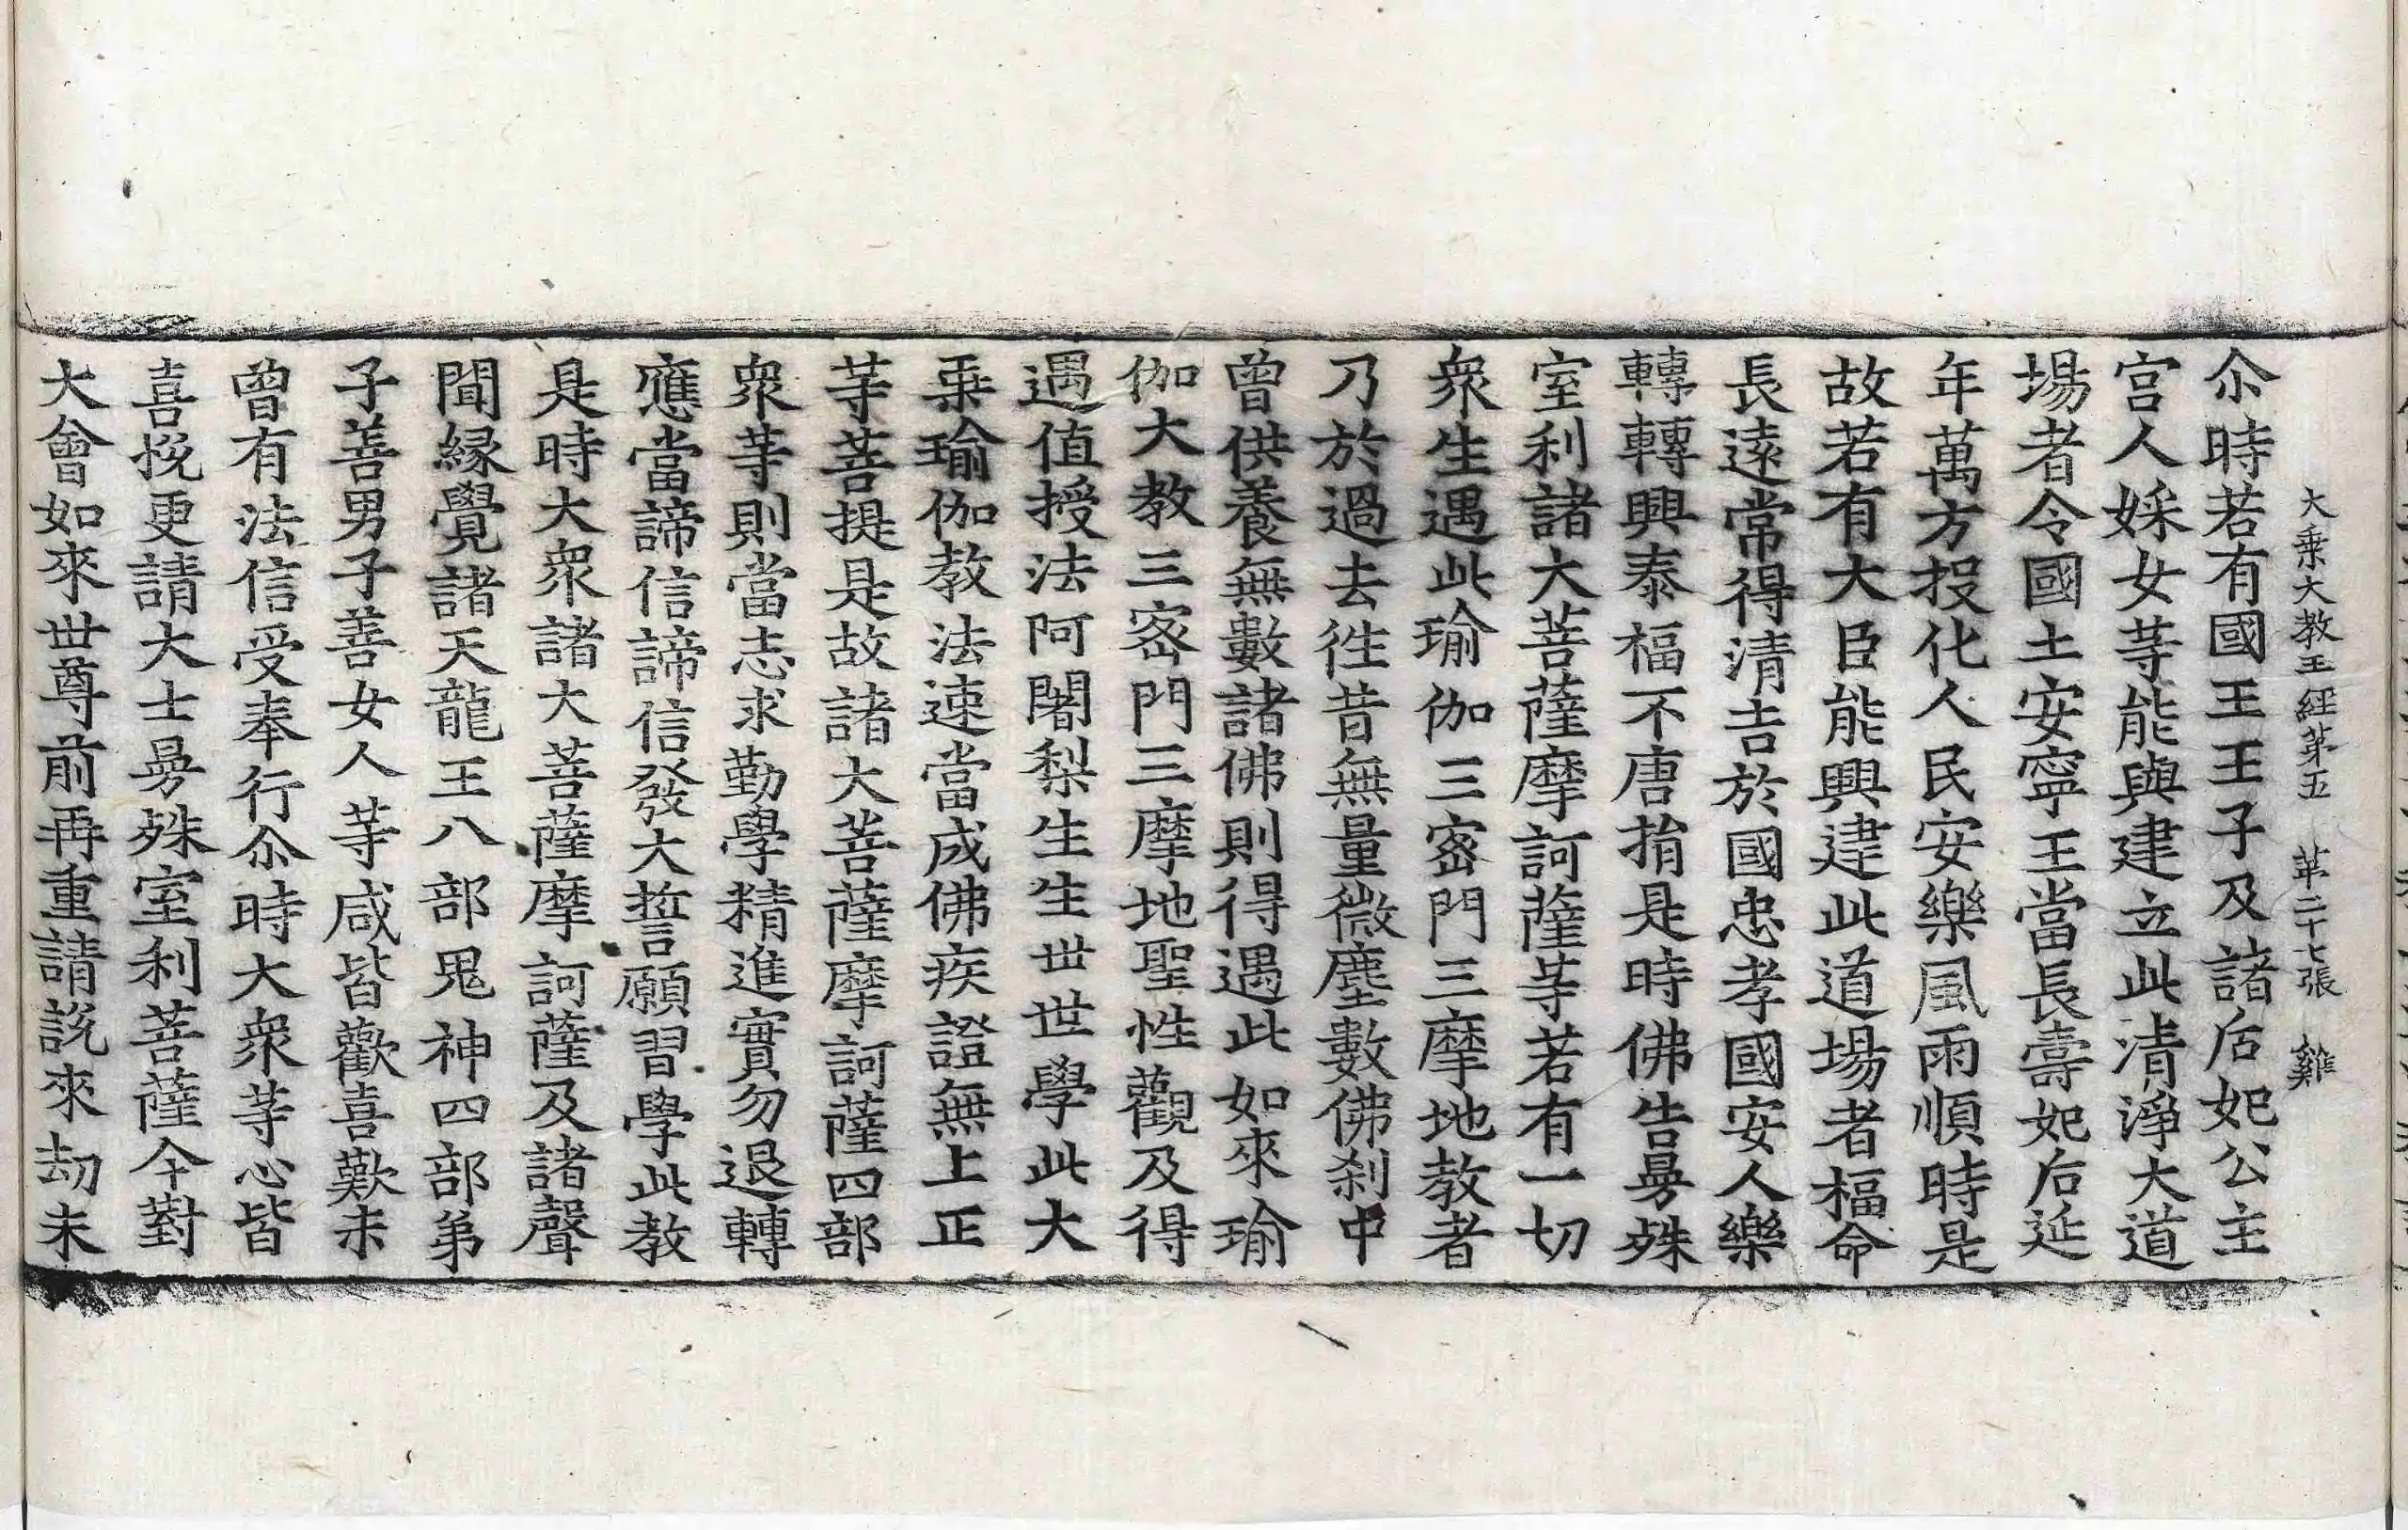 大乘大教王經第五 第二十七張 雞
尒時若有國王王子及諸后妃公主
宮人婇女䓁能與建立此清淨大道
場者令國土安寧王當長壽妃后延
年萬方投化人民安樂風雨順時是
故若有大臣能興建此道場者福命
長遠常得清吉於國忠孝國安人樂
轉轉興泰福不唐捐是時佛告曼殊
室利諸大菩薩摩訶薩䓁若有一切
衆生遇此瑜伽三密門三摩地教者
乃於過去徃昔無量微塵數佛剎中
曾供養無數諸佛則得遇此如來瑜
伽大教三密門三摩地聖性觀及得
遇值授法阿闍梨生生世世學此大
乘瑜伽教法速當成佛疾證無上正
䓁菩提是故諸大菩薩摩訶薩四部
衆䓁則當志求勤學精進實勿退轉
應當諦信諦信發大誓願習學此教
是時大衆諸大菩薩摩訶薩及諸聲
聞緣覺諸天龍王八部鬼神四部弟
子善男子善女人䓁咸皆歡喜歎未
曾有法信受奉行尒時大衆䓁心皆
喜悅更請大士曼殊室利菩薩今對
大會如來世尊前再重請說來劫未